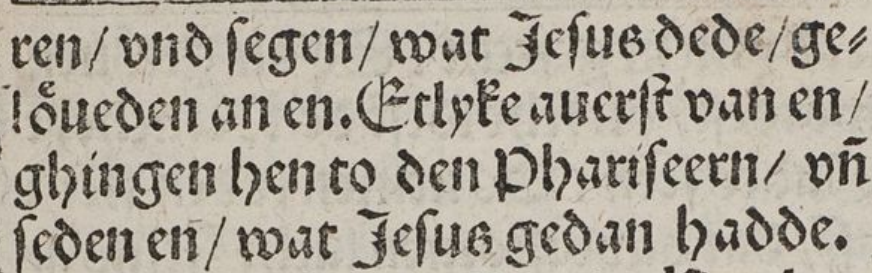 ren/ vnd ſegen/ wat Jeſus dede/ ge⸗
loͤueden an en. Etlyke auerſt van en/
ghingen hen to den Phariſeern/ vn̄
ſeden en/ wat Jeſus gedan hadde.